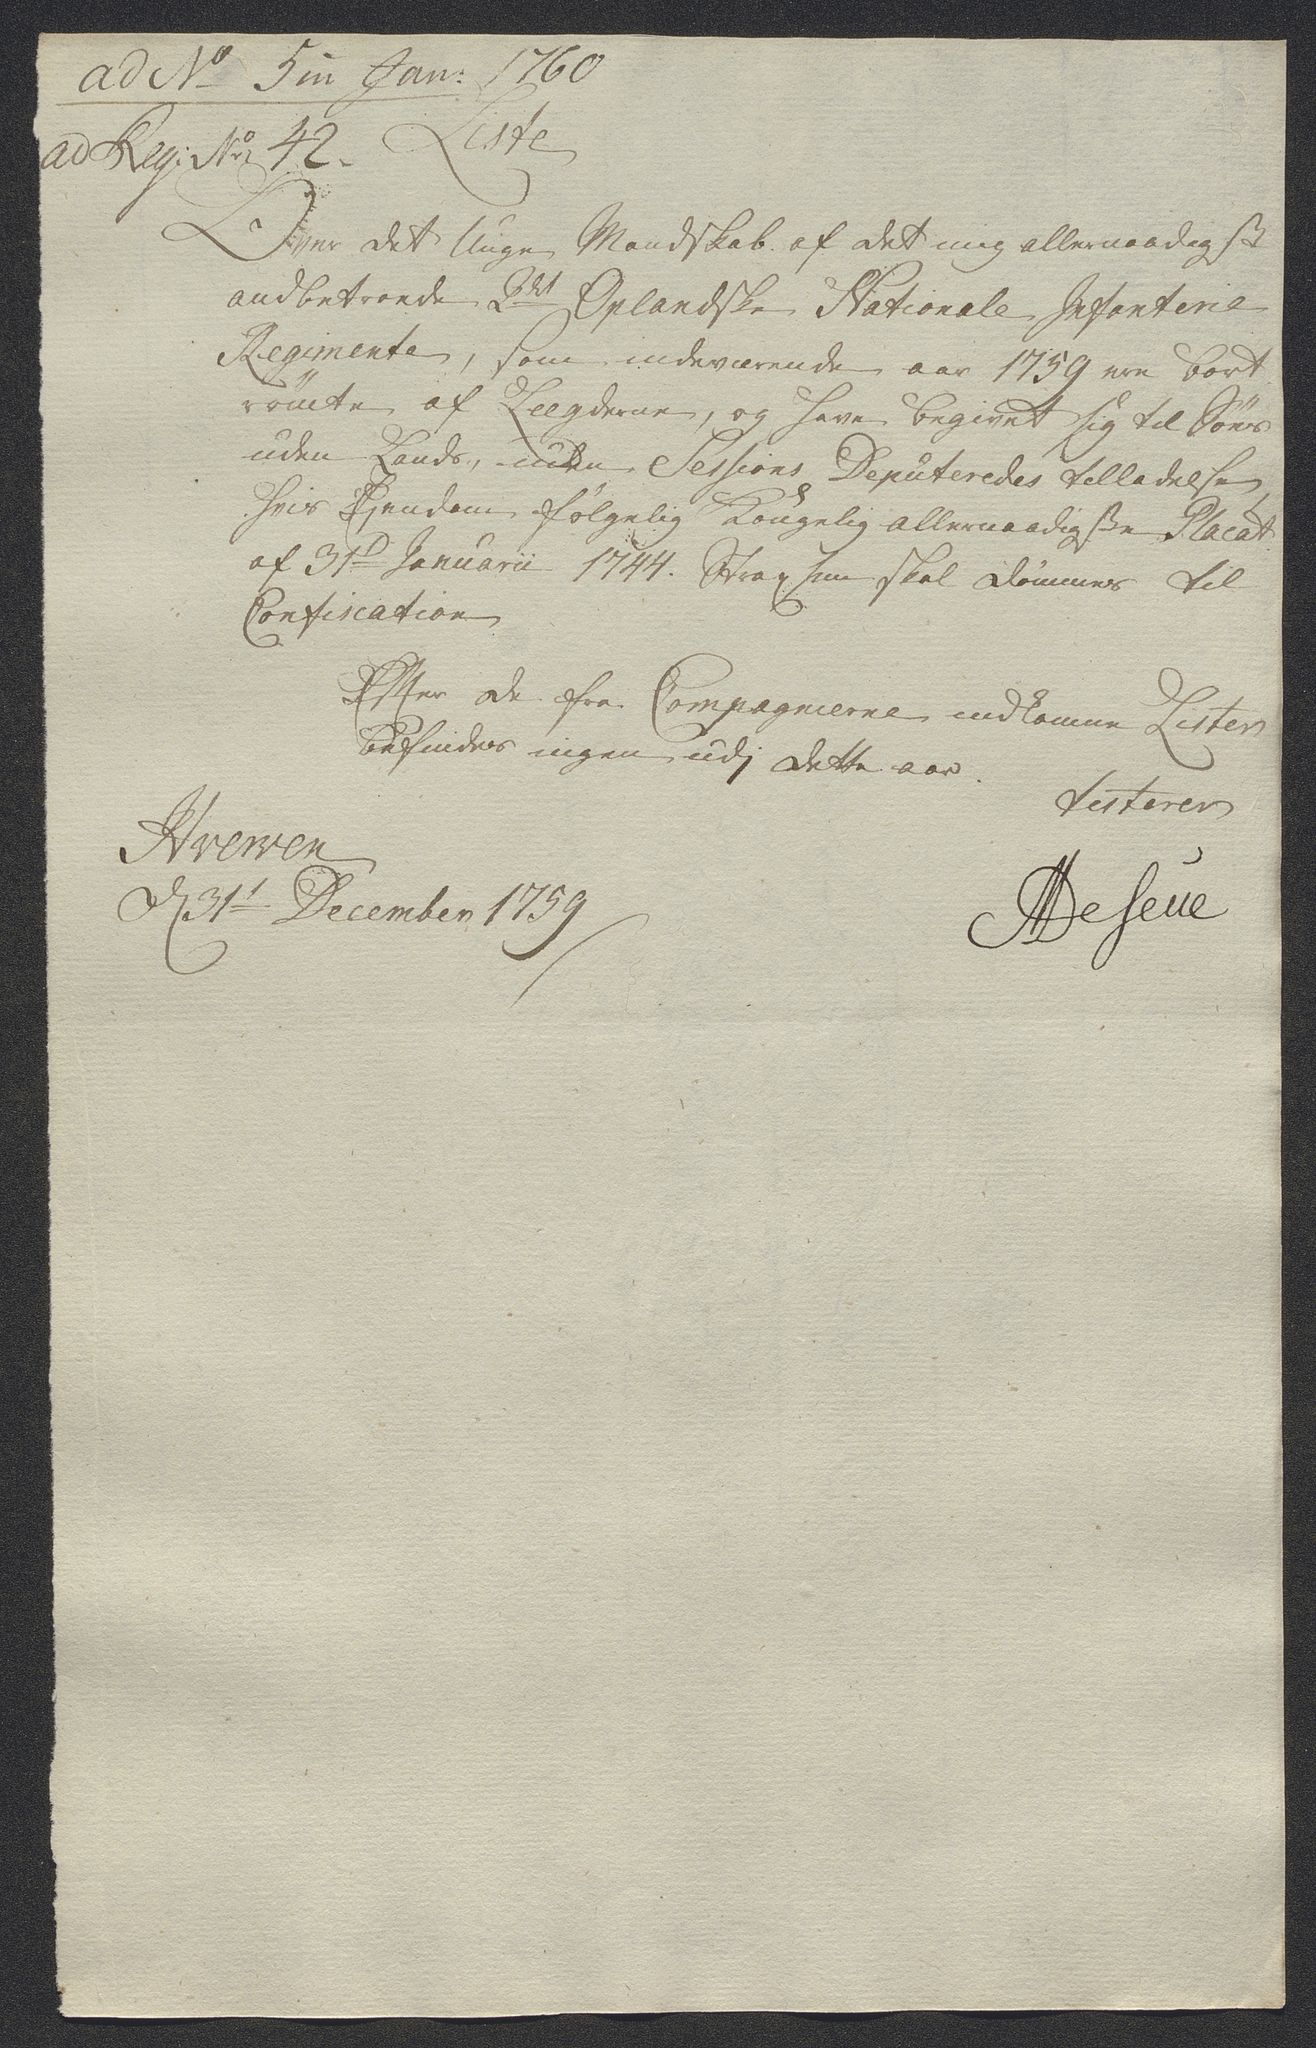 ad No 5 in Jan: 1760
ad Reg: No 42. Liste
Over det Unge Mandskab af det mig allernaadigst
andbetroede 2det Oplandske Nationale Infanterie
Regimente, som indeværende aar 1759 ere bort
römte af Leegderne, og have begivet sig til Söes
uden Lands, uden Sessions Deputeredes tilladelse,
hvis Ejendom følgelig Kongelig allernaadigste Placat
af 31te Januarii 1744. Strax skal dömmes til
Confiscation
Efter de fra Compagnierne indkomne Lister
befindes ingen udj dette aar.
testerer
d 31t December 1759
De Seue